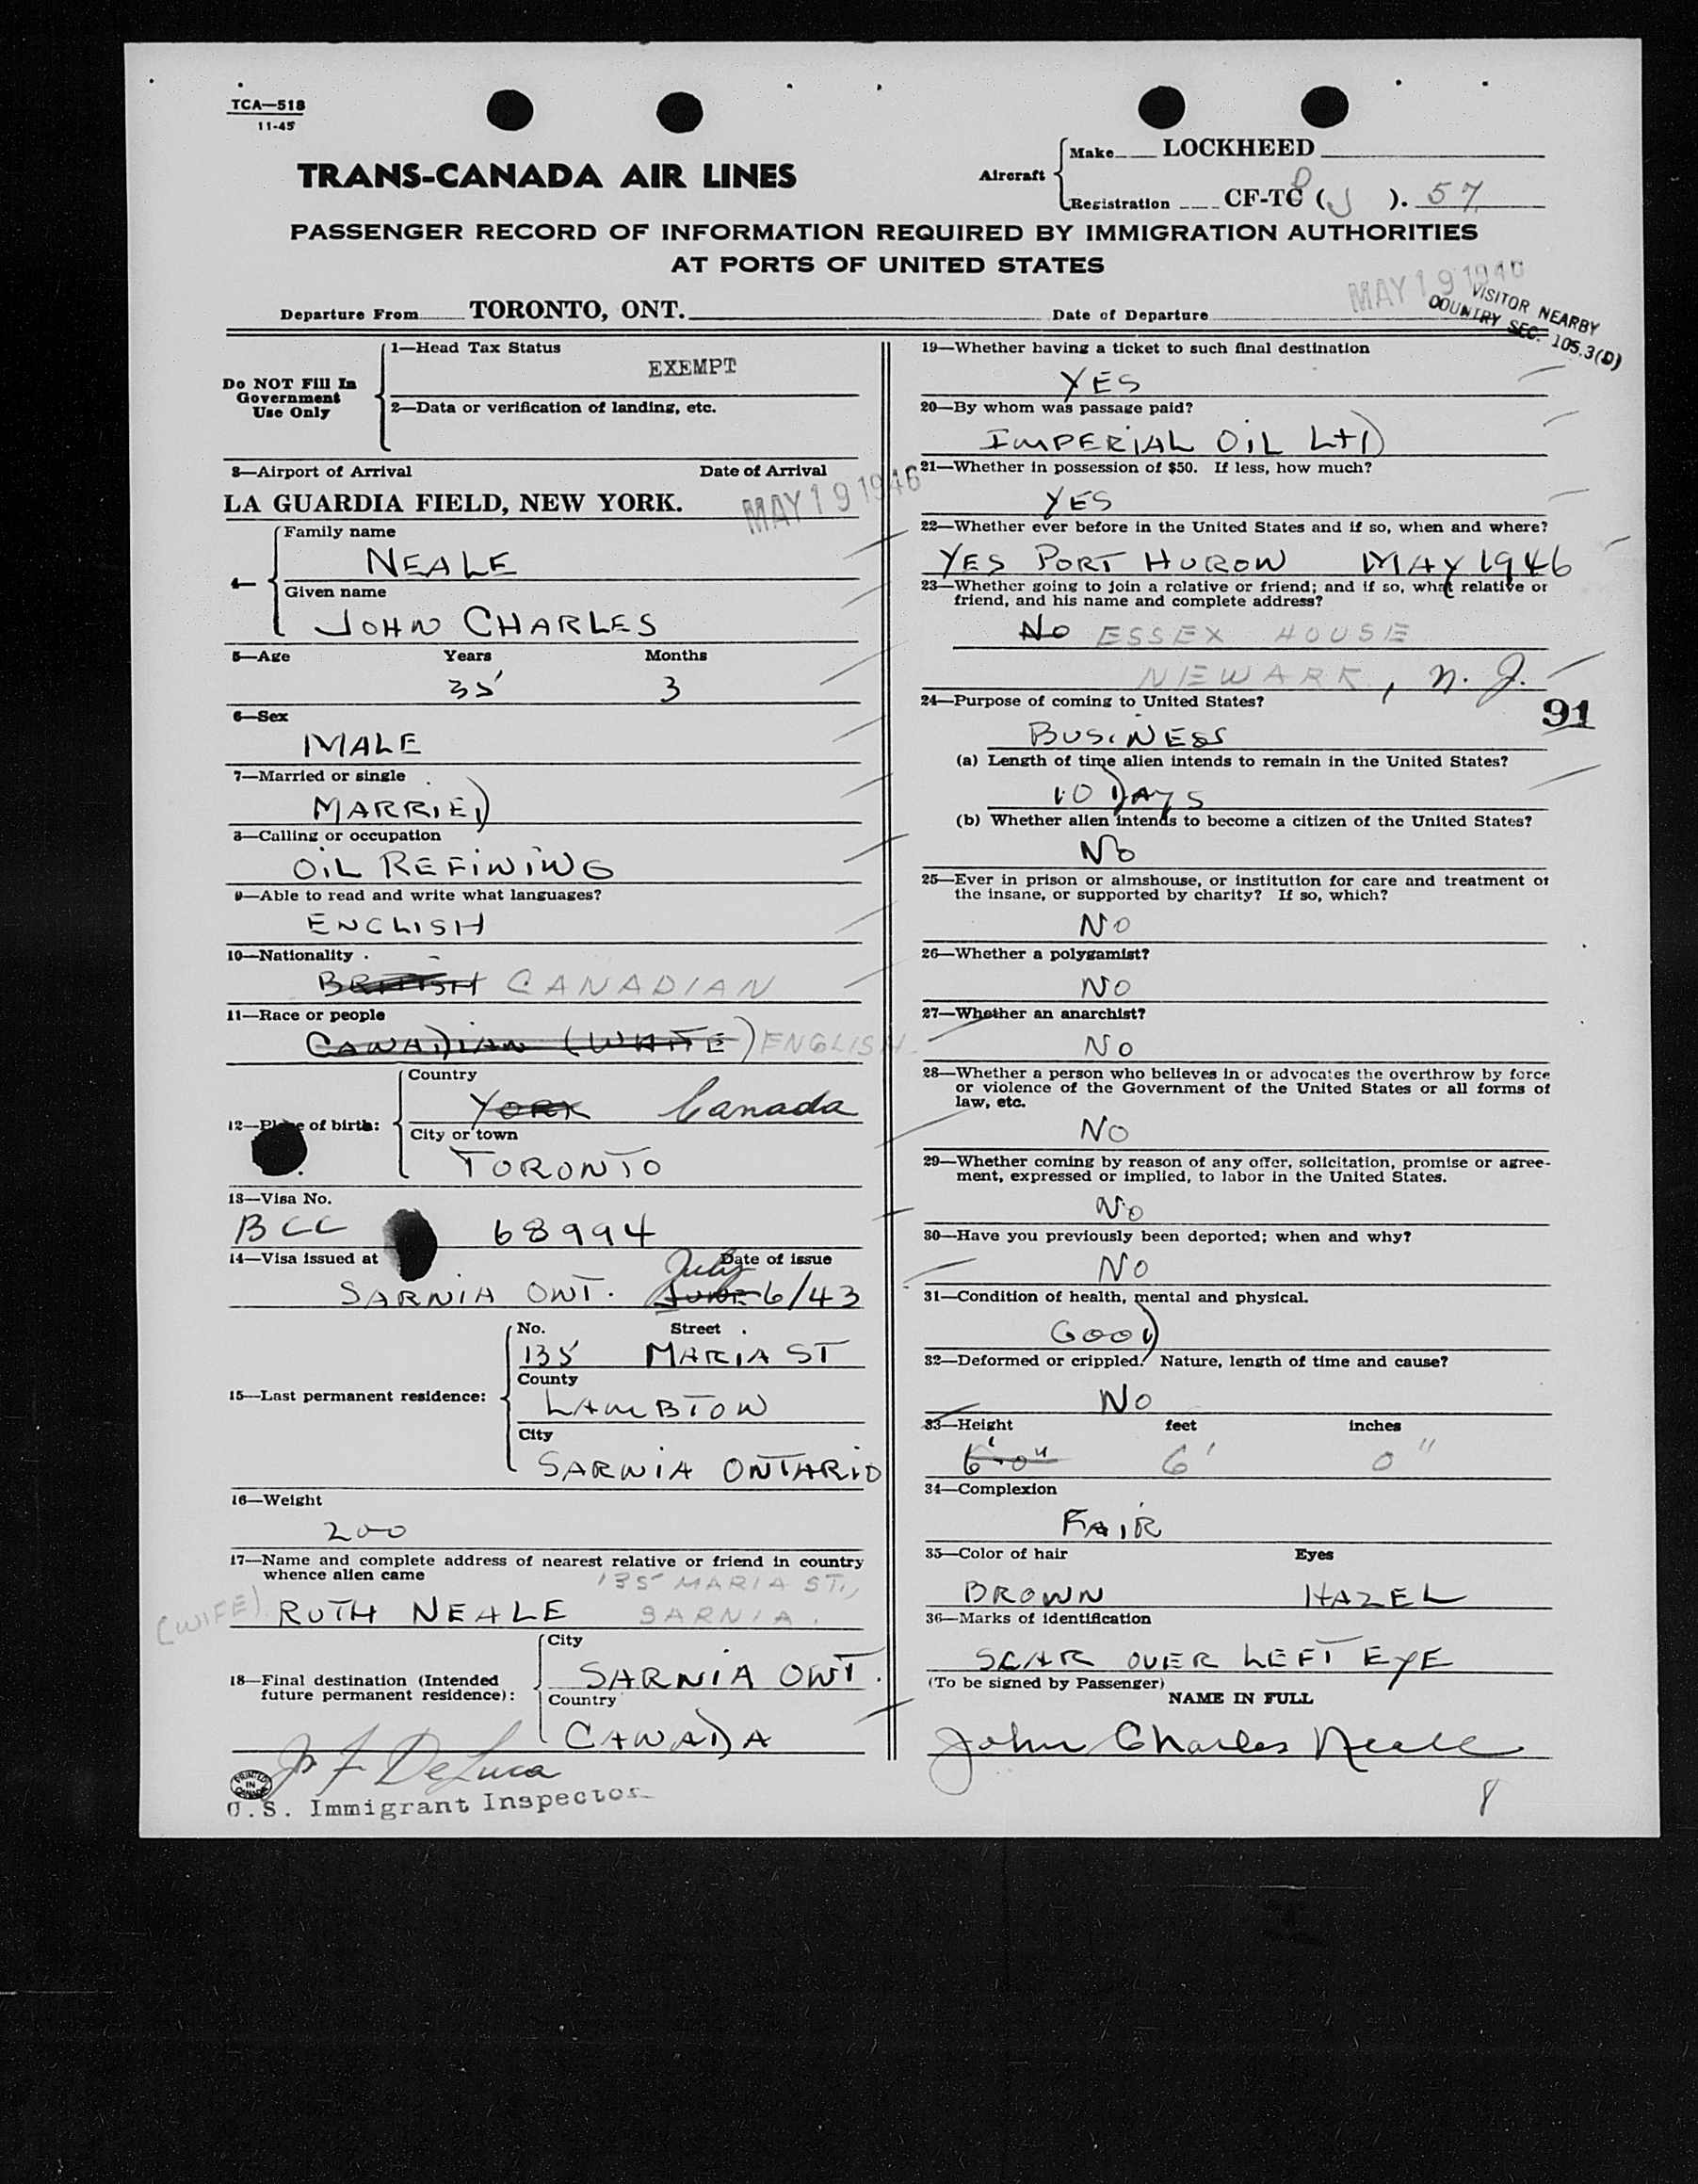 TCA—518
11-45
TRANS-CANADA AIR LINES
Aircraft
Make LOCKHEED
Registration CF-TC (J ). 57
PASSENGER RECORD OF INFORMATION REQUIRED BY IMMIGRATION AUTHORITIES
AT PORTS OF UNITED STATES
Departure From TORONTO, ONT. Date of Departure MAY 19 1946
VISITOR NEARBY
COUNTRY SEC. 105.3(D)
Do NOT Fill In
Government
Use Only
1—Head Tax Status
EXEMPT
2—Data or verification of landing, etc.
3—Airport of Arrival Date of Arrival
LA GUARDIA FIELD, NEW YORK. MAY 19 1946
4—
Family name
NEALE
Given name
JOHN CHARLES
5—Age Years Months
35 3
6—Sex
MALE
7—Married or single
MARRIED
8—Calling or occupation
OIL REFINING
9—Able to read and write what languages?
ENGLISH
10—Nationality
BRITISH CANADIAN
11—Race or people
CANADIAN (WHITE) ENGLISH
12—Place of birth:
Country
YORK Canada
City or town
TORONTO
13—Visa No.
BCC 68994
14—Visa issued at Date of issue
July
SARNIA ONT. JUNE 6/43
15—Last permanent residence:
No. Street
135 MARIA ST
County
LAMBTON
City
SARNIA ONTARIO
16—Weight
200
17—Name and complete address of nearest relative or friend in country
whence alien came
135 MARIA ST.,
(WIFE) RUTH NEALE SARNIA.
18—Final destination (Intended
future permanent residence):
City
SARNIA ONT.
Country
CANADA
DeLuca
PRINTED IN CANADA
U.S. Immigrant Inspector
19—Whether having a ticket to such final destination
YES
20—By whom was passage paid?
IMPERIAL OIL LTD
21—Whether in possession of $50. If less, how much?
YES
22—Whether ever before in the United States and if so, when and where?
YES PORT HURON MAY 1946
23—Whether going to join a relative or friend; and if so, what relative or
friend, and his name and complete address?
NO ESSEX HOUSE
NEWARK, N. J.
91
24—Purpose of coming to United States?
BUSINESS
(a) Length of time alien intends to remain in the United States?
10 DAYS
(b) Whether alien intends to become a citizen of the United States?
NO
25—Ever in prison or almshouse, or institution for care and treatment of
the insane, or supported by charity? If so, which?
NO
26—Whether a polygamist?
NO
27—Whether an anarchist?
NO
28—Whether a person who believes in or advocates the overthrow by force
or violence of the Government of the United States or all forms of
law, etc.
NO
29—Whether coming by reason of any offer, solicitation, promise or agree-
ment, expressed or implied, to labor in the United States.
NO
30—Have you previously been deported; when and why?
NO
31—Condition of health, mental and physical.
GOOD
32—Deformed or crippled. Nature, length of time and cause?
NO
33—Height feet inches
6'0" 6' 0"
34—Complexion
FAIR
35—Color of hair Eyes
BROWN HAZEL
36—Marks of identification
SCAR OVER LEFT EYE
(To be signed by Passenger)
NAME IN FULL
John Charles Neale